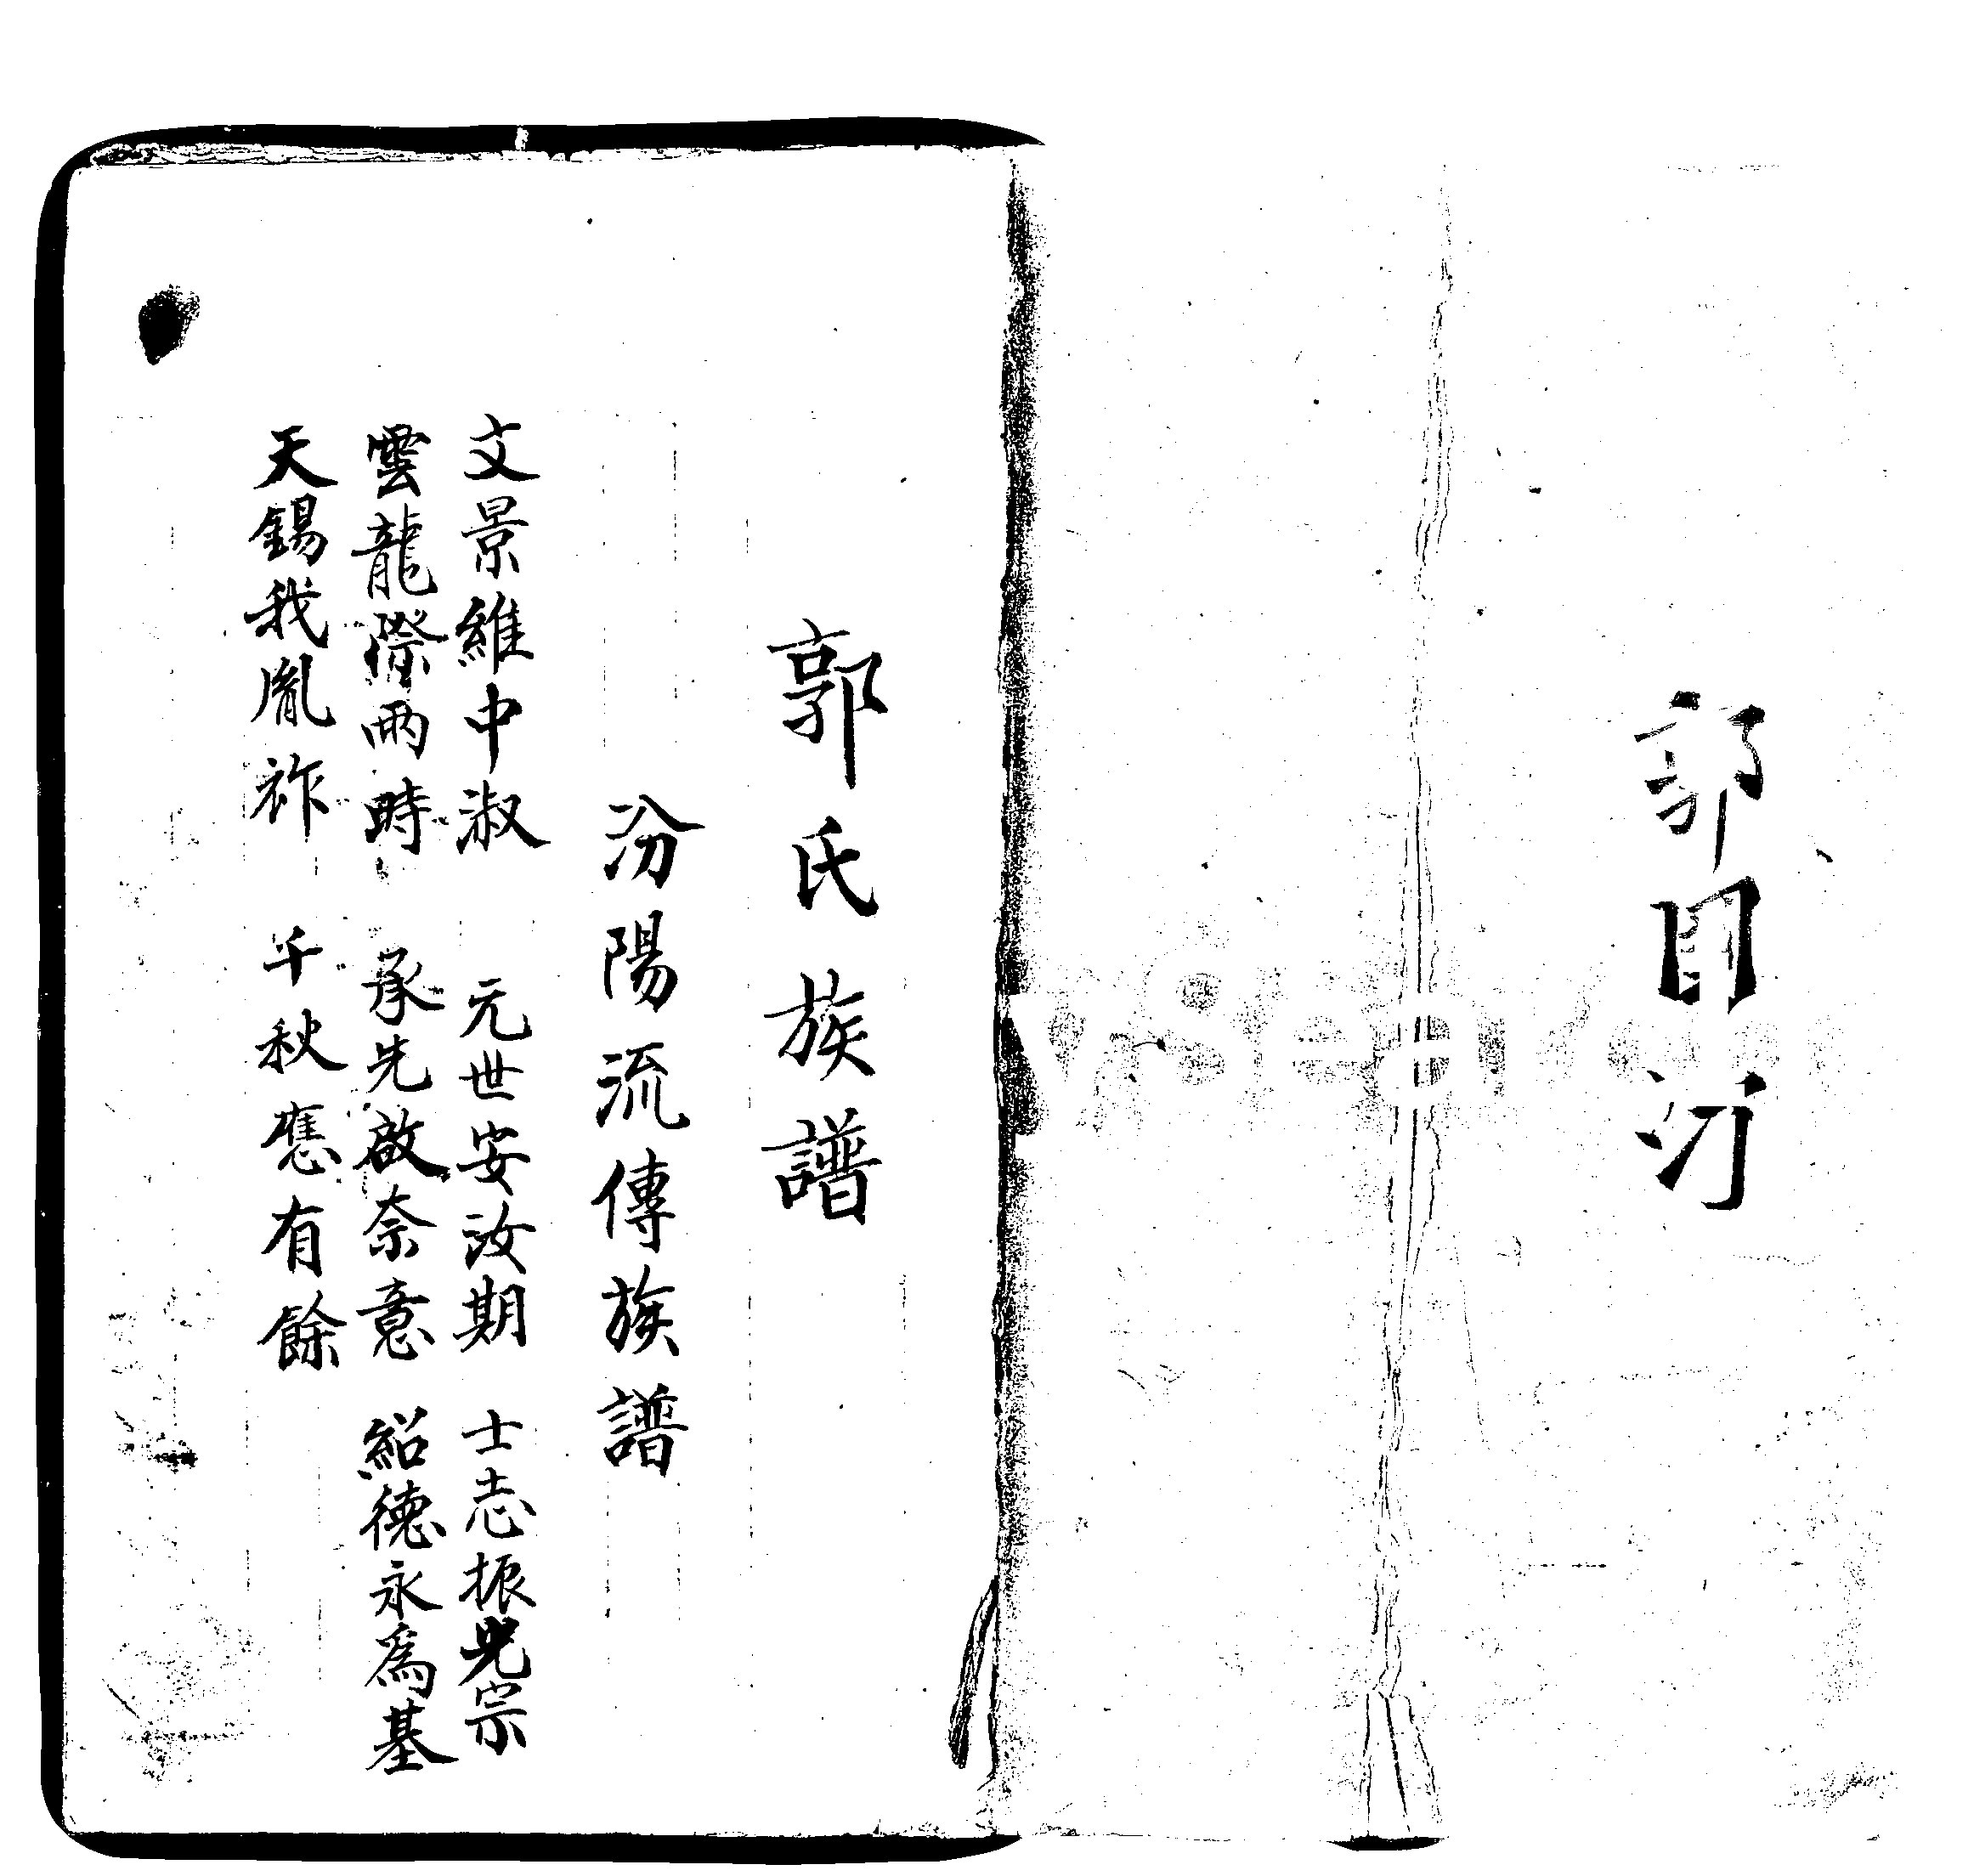 郭目汀
郭氏族譜
汾陽流傳族譜
文景維中淑 元世安汝期 士志振光宗
雲龍際兩時 承先啟奈意 紹德永爲基
天錫我胤祚 千秋應有餘